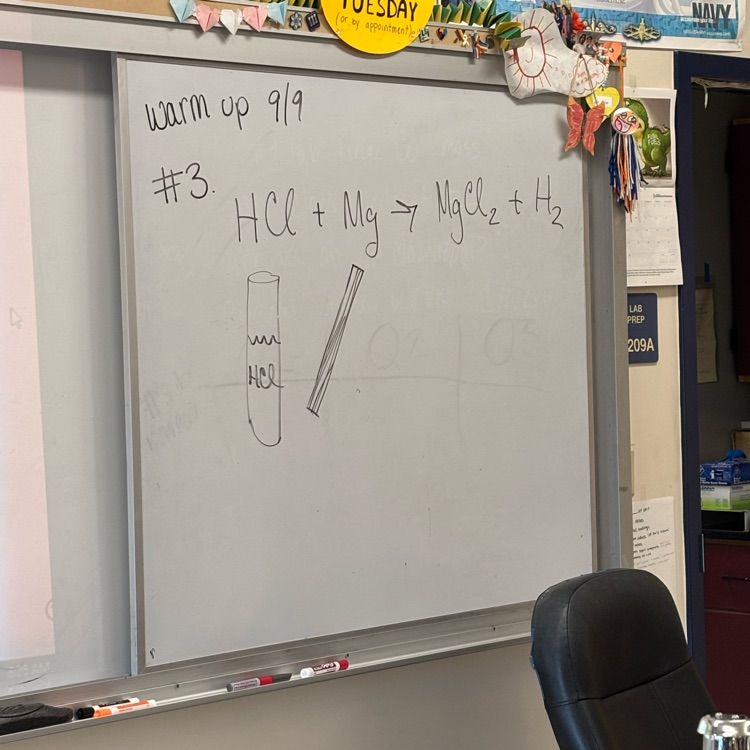 TUESDAY
(or by appointment)
NAVY
warm up 9/9
#3.
HCl + Mg → MgCl₂ + H₂
HCl
LAB
PREP
209A